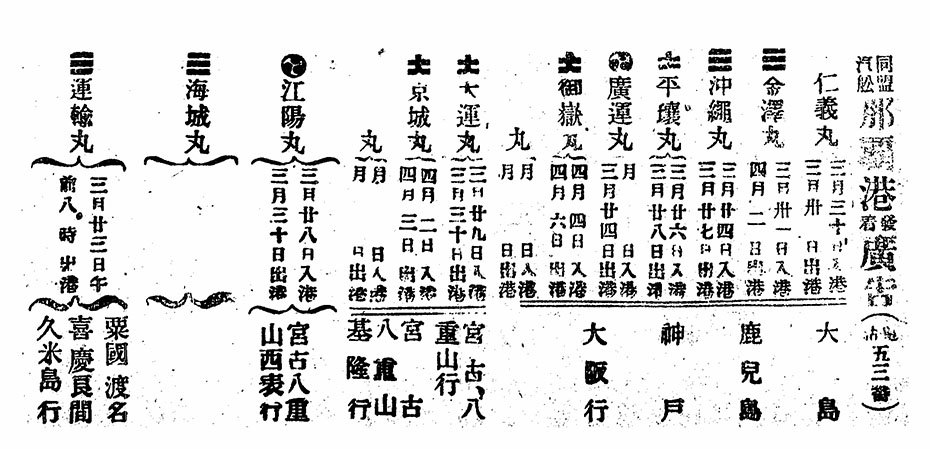 同盟汽舩那覇港發着廣告(電話五三番)
仁義丸
三月三十日入港
三月卅 日出港
金澤丸
三月卅一日入港
四月二日出港
沖繩丸
三月廿四日入港
三月廿七日出港
平壤丸
三月廿六日入港
三月廿八日出港
廣運丸
月 日入港
三月廿四日出港
御嶽丸
四月四日入港
四月六日出港
丸
月 日入港
月 日出港
大島
鹿兒島
神戸
大阪行
大運丸
三月廿九日入港
三月三十日出港
宮古、八
重山行
京城丸
四月二日入港
四月三日出港
丸
月 日入港
月 日出港
宮古
八重山
基隆行
江陽丸
三月廿八日入港
三月三十日出港
宮古八重
山西表行
海城丸
運輸丸
三月廿三日午
前八時出港
粟國渡名
喜慶良間
久米島行